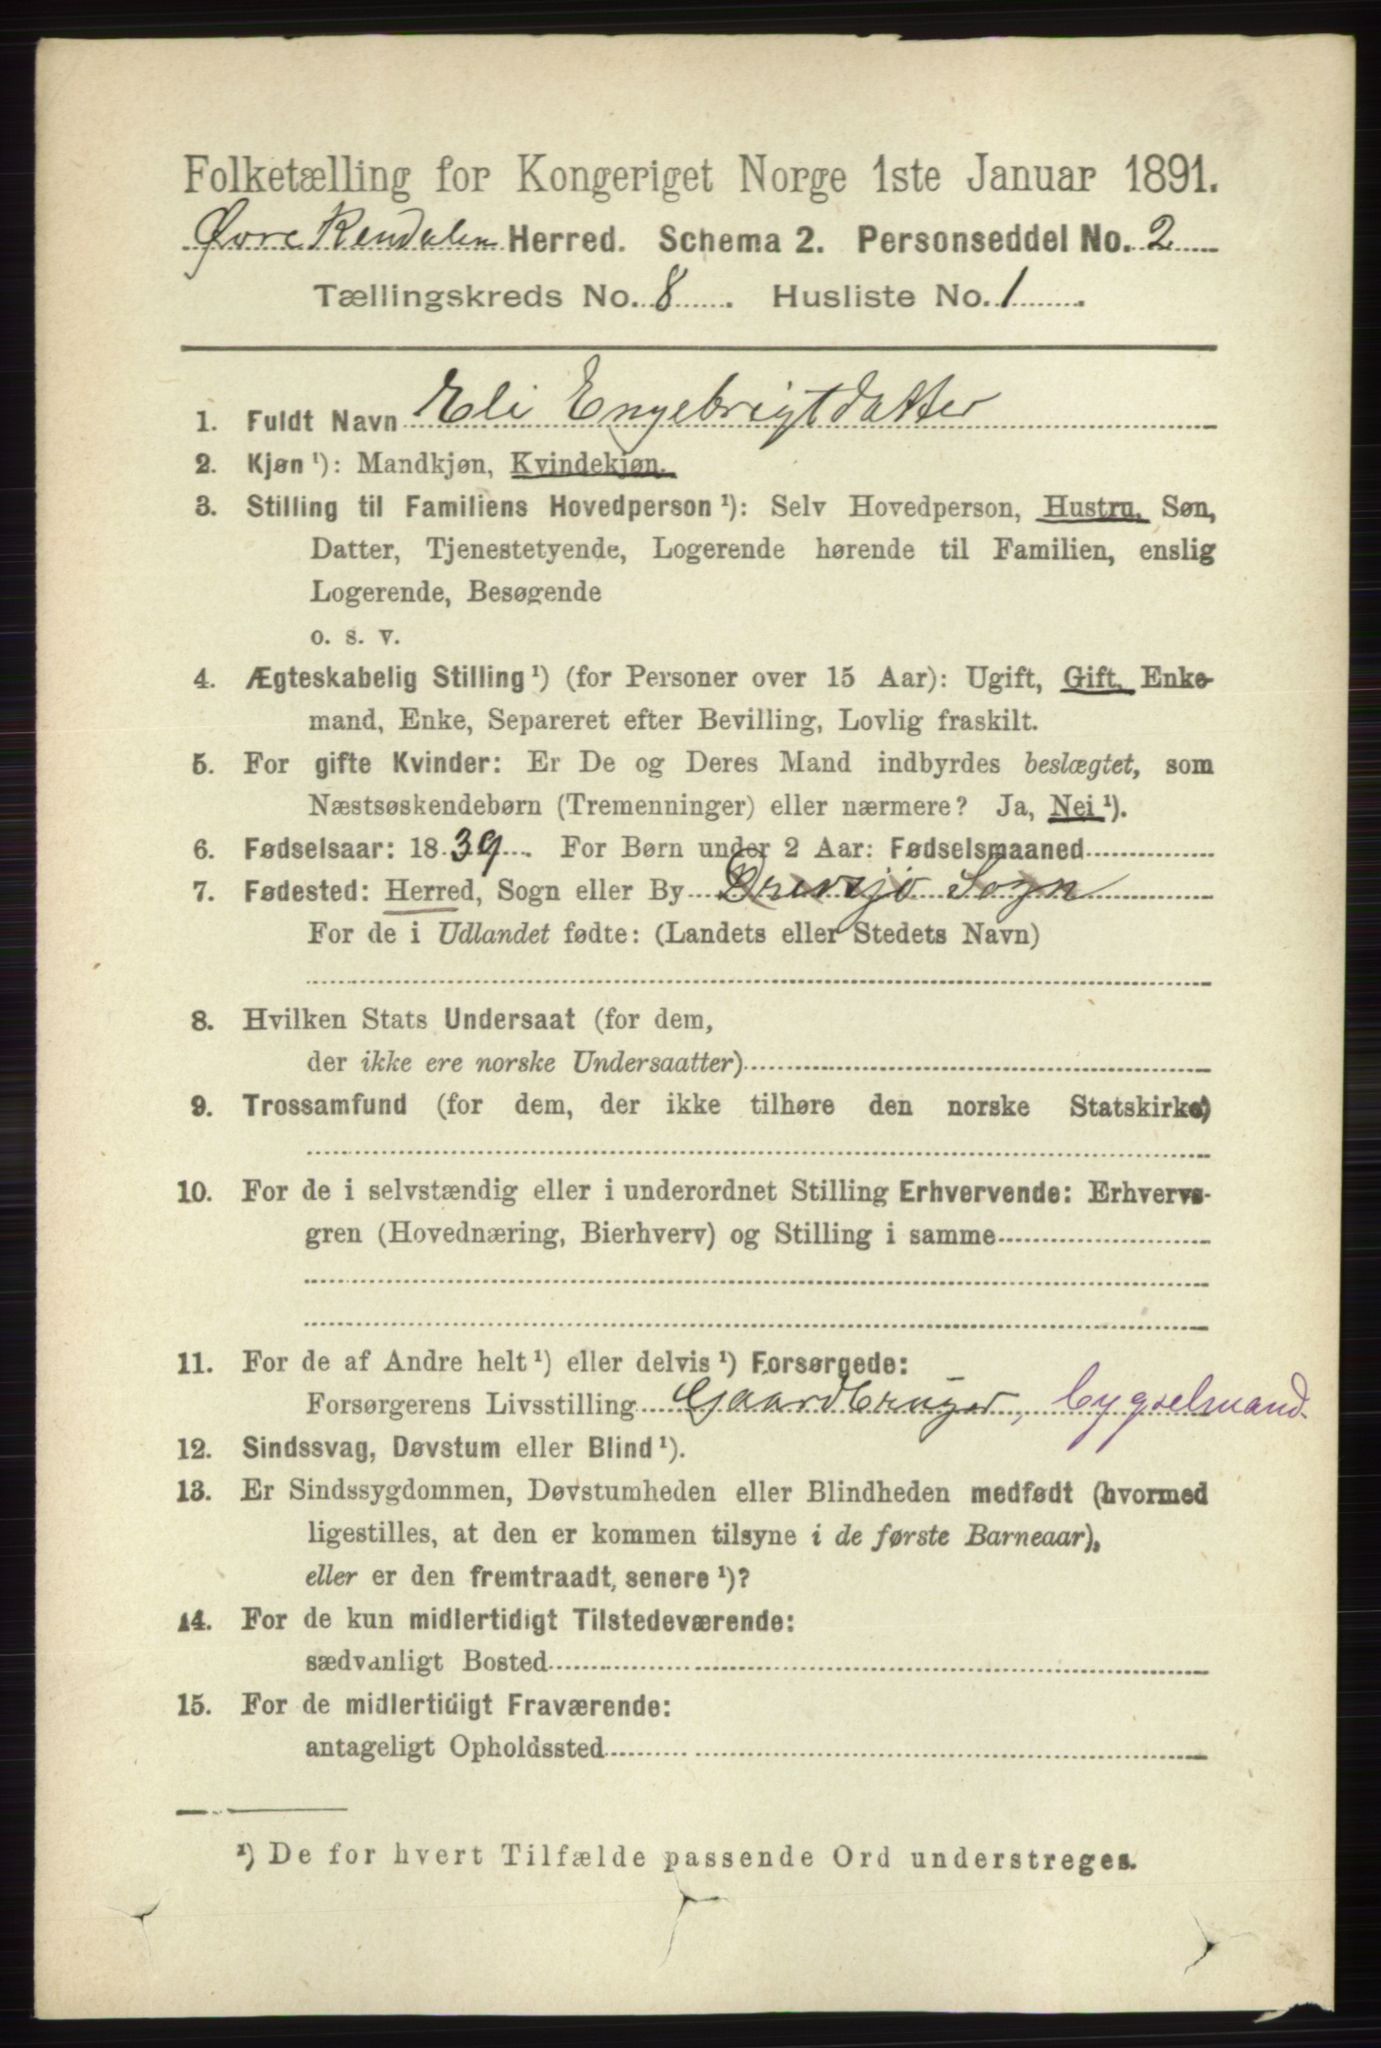 Folketælling for Kongeriget Norge 1ste Januar 1891.
Øvre Rendalen Herred. Schema 2. Personseddel No. 2
Tællingskreds No. 8. Husliste No. 1.
1. Fuldt Navn Eli Engebrigtdatter
2. Kjøn ¹): Mandkjøn, Kvindekjøn.
3. Stilling til Familiens Hovedperson ¹): Selv Hovedperson, Hustru, Søn,
Datter, Tjenestetyende, Logerende hørende til Familien, enslig
Logerende, Besøgende
o. s. v.
4. Ægteskabelig Stilling ¹) (for Personer over 15 Aar): Ugift, Gift, Enke-
mand, Enke, Separeret efter Bevilling, Lovlig fraskilt.
5. For gifte Kvinder: Er De og Deres Mand indbyrdes beslægtet, som
Næstsøskendebørn (Tremenninger) eller nærmere? Ja, Nei ¹).
6. Fødselsaar: 1839. For Børn under 2 Aar: Fødselsmaaned
7. Fødested: Herred, Sogn eller By Drevsjø Sogn
For de i Udlandet fødte: (Landets eller Stedets Navn)
8. Hvilken Stats Undersaat (for dem,
der ikke ere norske Undersaatter)
9. Trossamfund (for dem, der ikke tilhøre den norske Statskirke)
10. For de i selvstændig eller i underordnet Stilling Erhvervende: Erhvervs-
gren (Hovednæring, Bierhverv) og Stilling i samme
11. For de af Andre helt ¹) eller delvis ¹) Forsørgede:
Forsørgerens Livsstilling Gaardbruger, bygselmand.
12. Sindssvag, Døvstum eller Blind ¹).
13. Er Sindssygdommen, Døvstumheden eller Blindheden medfødt (hvormed
ligestilles, at den er kommen tilsyne i de første Barneaar),
eller er den fremtraadt senere ¹)?
14. For de kun midlertidigt Tilstedeværende:
sædvanligt Bosted
15. For de midlertidigt Fraværende:
antageligt Opholdssted
¹) De for hvert Tilfælde passende Ord understreges.